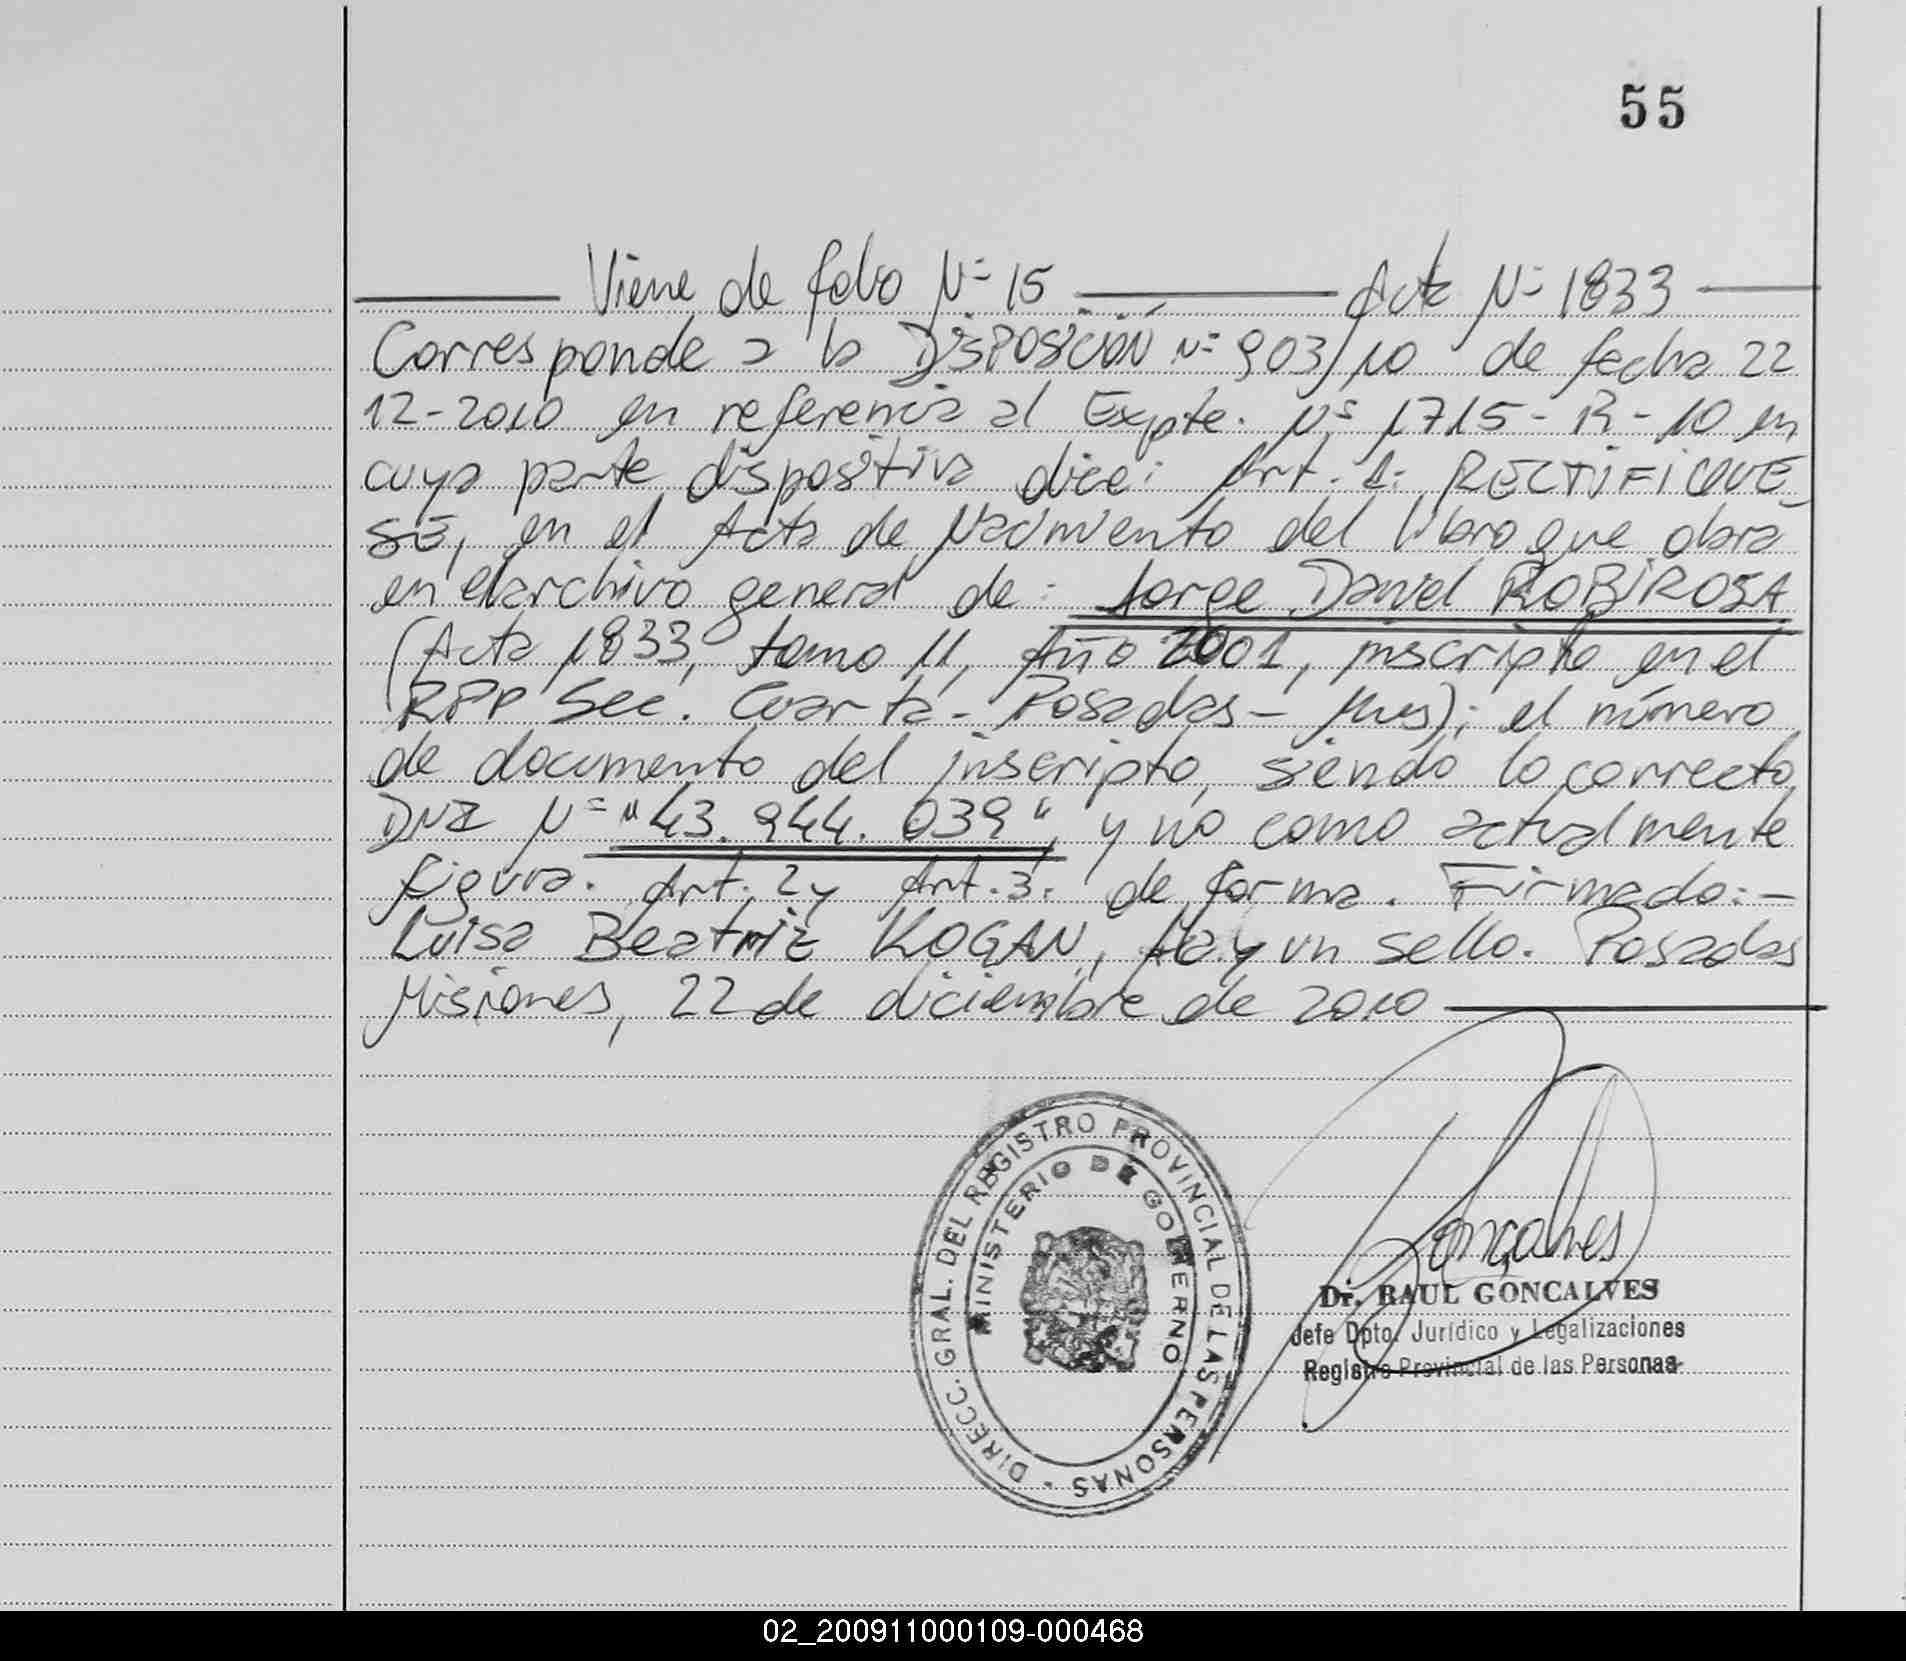 55
Viene de folio Nº 15 Acta Nº 1833
Corresponde a la DISPOSICIÓN Nº 903/10 de fecha 22
12-2010 en referencia al Expte. Nº 1715-R-10 en
cuya parte dispositiva dice: Art. 1: RECTIFIQUE
SE, en el Acta de Nacimiento del libro que obra
en el archivo general de: Jorge Daniel ROBIROSA
(Acta 1833, tomo 11, Año 2001, inscripto en el
RPP Sec. Cuarta - Posadas - Mnes); el número
de documento del inscripto, siendo lo correcto
DNI Nº "43.944.039", y no como actualmente
figura. Art. 2 y Art. 3. de forma. Firmado:-
Luisa Beatriz KOGAN, Hay un sello. Posadas
Misiones, 22 de diciembre de 2010
DIRECC. GRAL. DEL REGISTRO PROVINCIAL DE LAS PERSONAS -
MINISTERIO DE GOBIERNO
Goncalves
Dr. RAUL GONCALVES
Jefe Dpto. Jurídico y Legalizaciones
Registro Provincial de las Personas
02_200911000109-000468